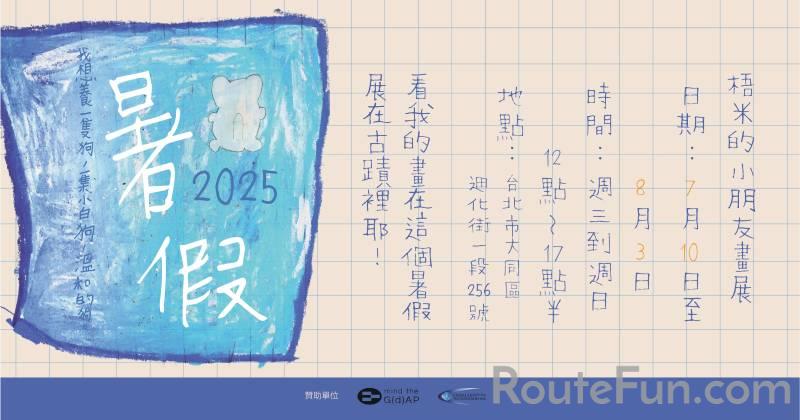 梧米的小朋友畫展
日期：7月10日至
8月3日
時間：週三到週日
12點～17點半
地點：台北市大同區
迪化街一段256號
看我的畫在這個暑假
展在古蹟裡耶！
暑假
2025
我想養一隻狗！
小白狗
溫和的狗
贊助單位
mind the
G(d)AP
RouteFun.com